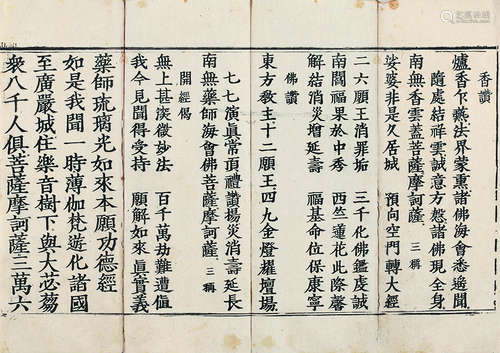 香讚
爐香乍爇法界蒙熏諸佛海會悉遙聞
隨處結祥雲誠意方慇諸佛現全身
南無香雲蓋菩薩摩訶薩 三稱
娑婆非是久居城 預向空門轉大經
二六願王消罪垢 三千化佛鑑虔誠
南閻福果於中秀 西竺蓮花此際馨
解結消災增延壽 福基命位保康寧
佛讚
東方教主十二願王四九金燈耀壇場
七七演眞常頂禮讚揚災消壽延長
南無藥師海會佛菩薩摩訶薩 三稱
開經偈
無上甚深微妙法 百千萬劫難遭值
我今見聞得受持 願解如來眞實義
藥師琉璃光如來本願功德經
如是我聞一時薄伽梵遊化諸國
至廣嚴城住樂音樹下與大苾蒭
衆八千人俱菩薩摩訶薩三萬六